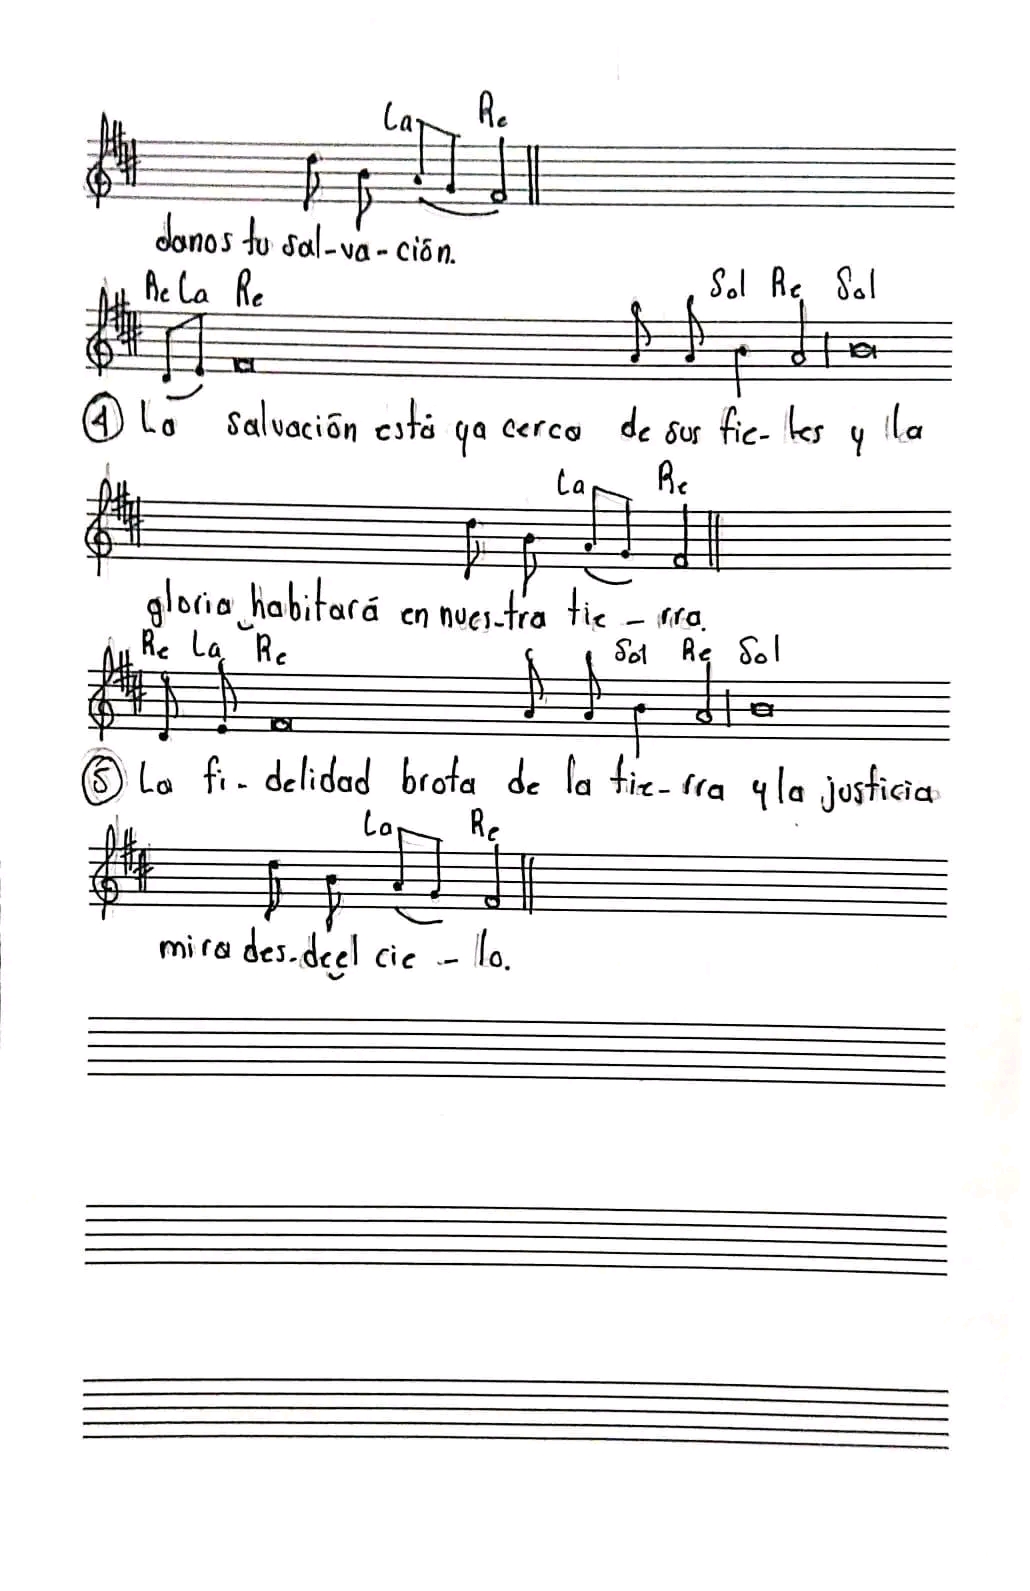 La Re
danos tu sal-va-ción.
Re La Re Sol Re Sol
④ La salvación está ya cerca de sus fie-les y la
La Re
gloria habitará en nues-tra tie-rra.
Re La Re Sol Re Sol
⑤ La fi-delidad brota de la tie-rra y la justicia
La Re
mira des-deel cie-lo.